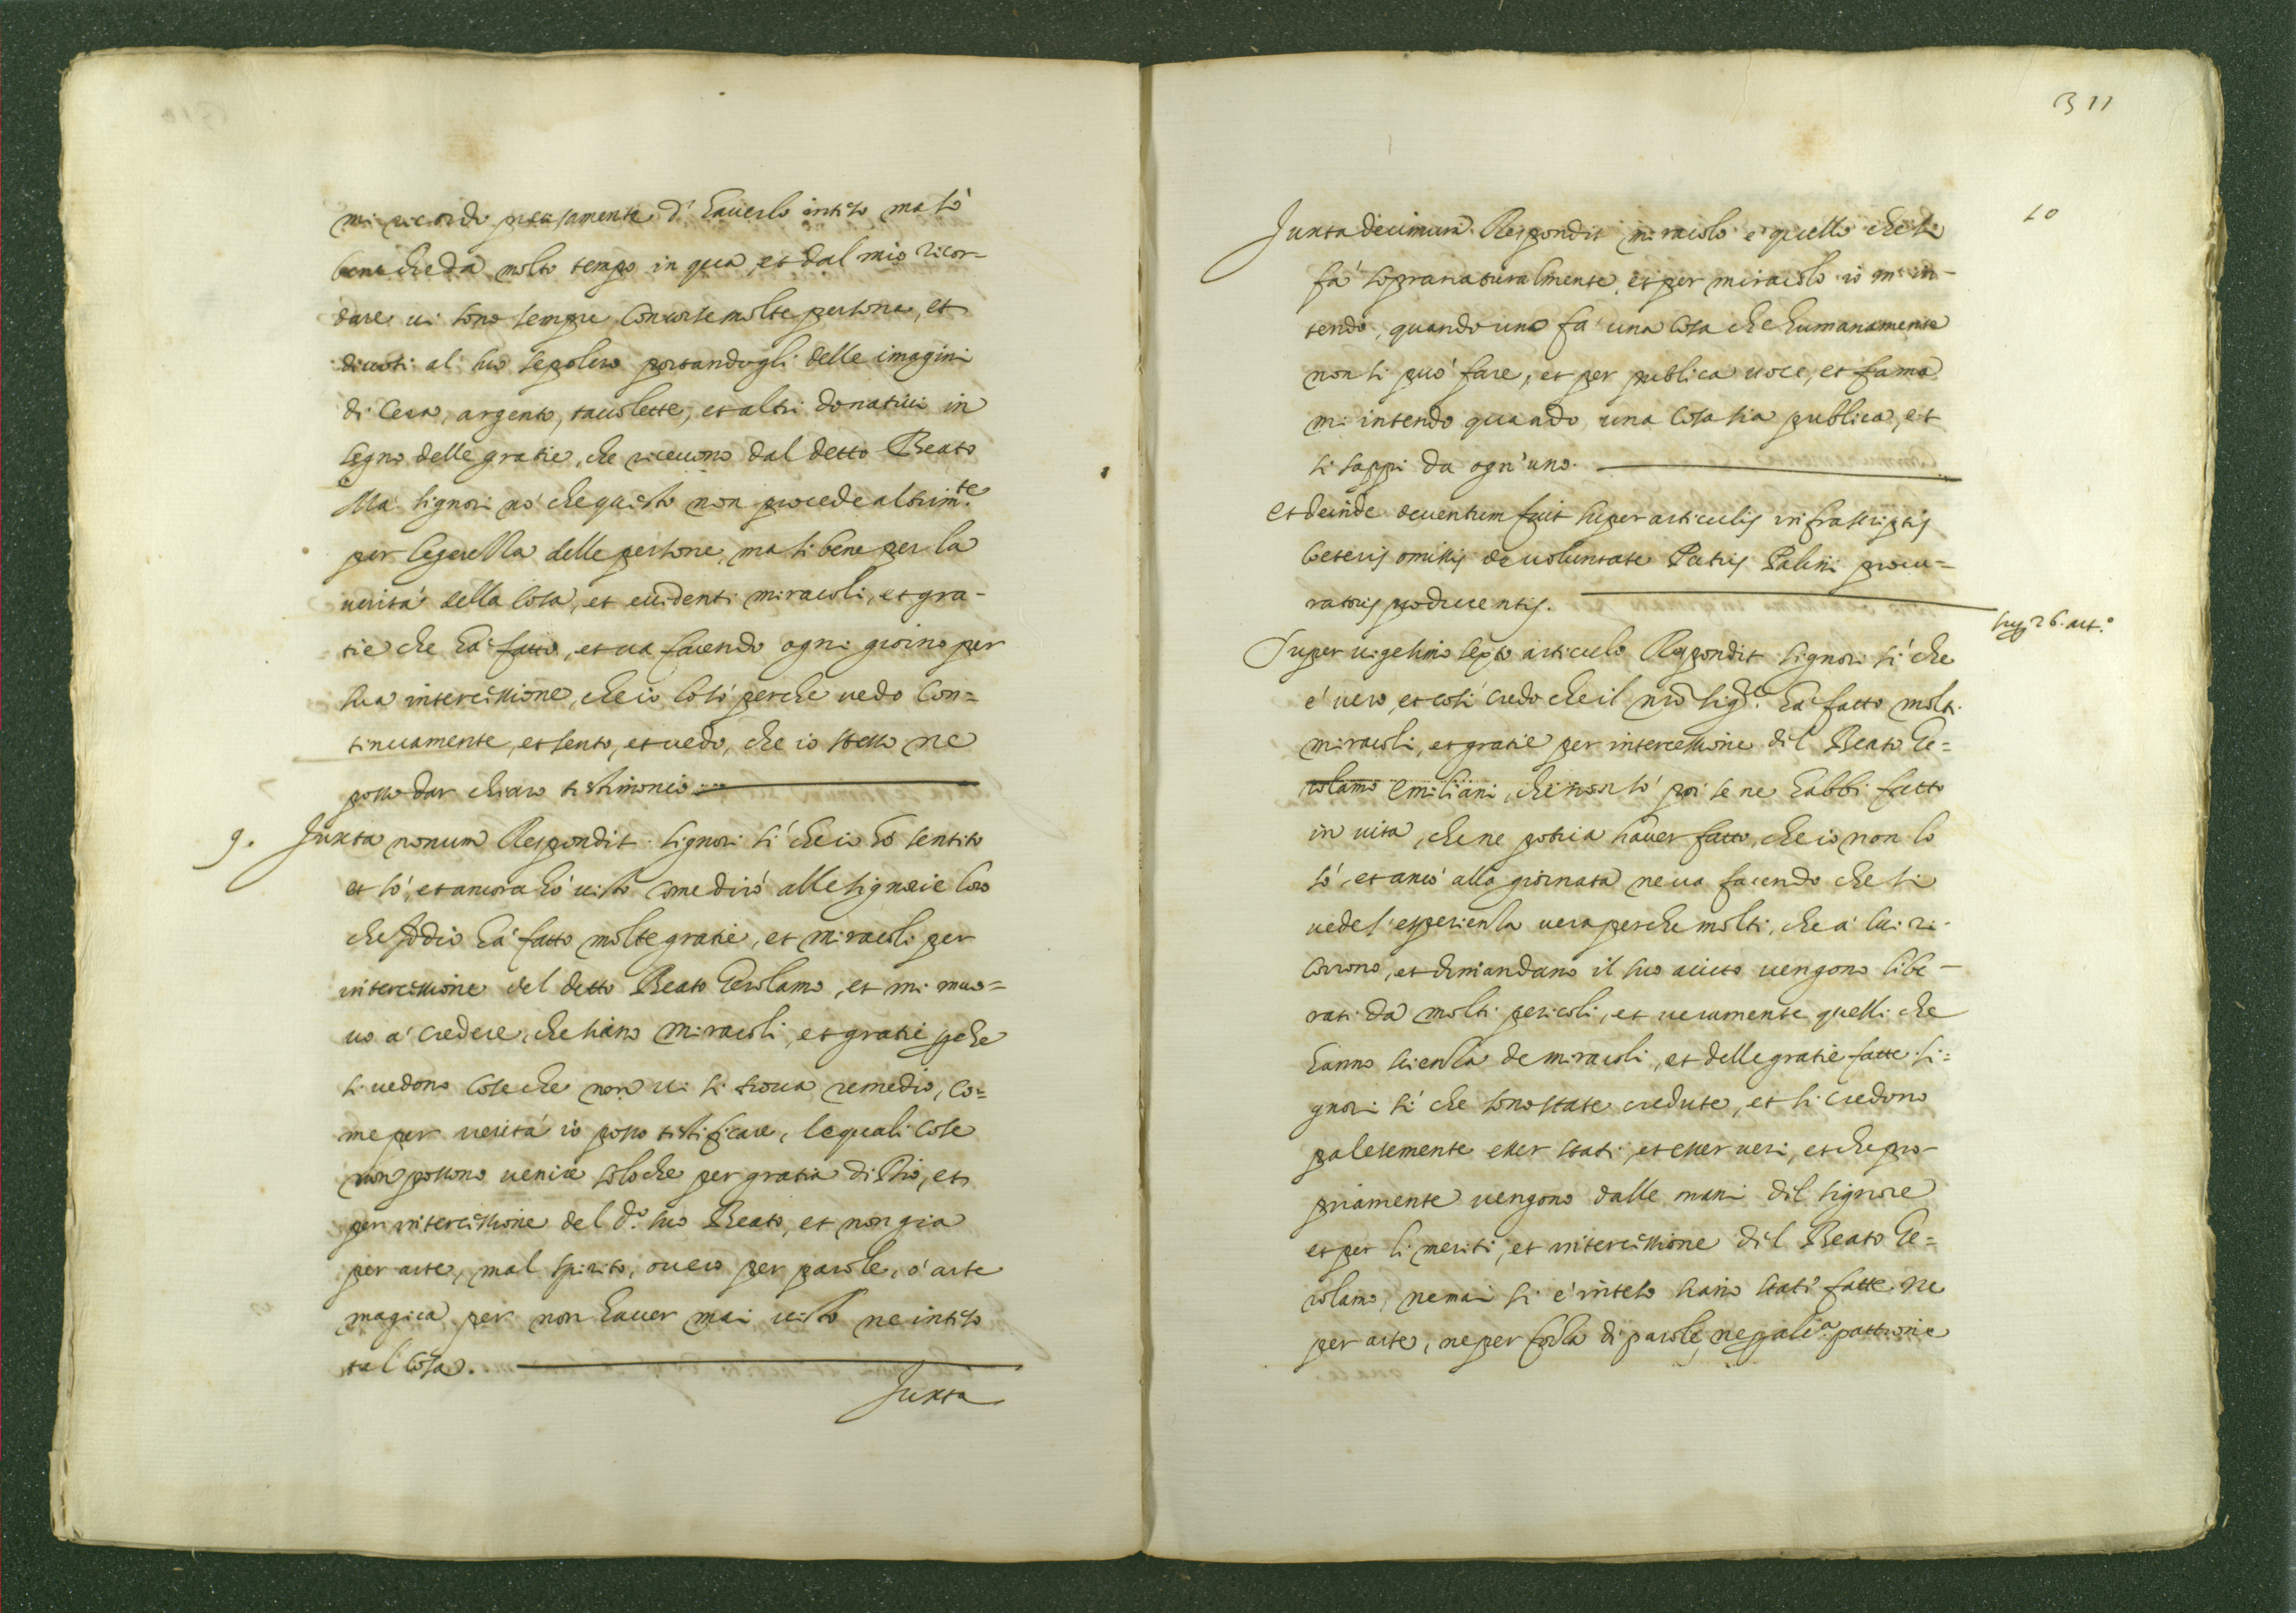 mi ricordo precisamente d'haverlo inteso ma sò
bene che da molto tempo in qua, et dal mio ricor-
dare vi sono sempre concorse molte persone, et
divoti al suo sepolcro portandogli delle imagini
di cera, argento, tavolette, et altri donativi in
segno delle gratie, che ricevono dal detto Beato
Ma signori nò che questo non procede altrim.te
per legerezza delle persone, ma sì bene per la
verità della cosa, et evidenti miracoli, et gra-
tie che hà fatto, et va facendo ogni giorno per
sua intercessione, che io lo sò perche vedo con=
tinuamente, et sento, et vedo, che io stesso ne
posso dar chiaro testimonio
9. Juxta nonum Respondit signori sì che io hò sentito
et sò, et ancora hò visto come dirò alle signorie loro
che Iddio hà fatto molte gratie, et miracoli per
intercessione del detto Beato Gerolamo, et mi muo=
vo a credere, che siano miracoli, et gratie perche
si vedono cose che non vi si trova remedio, co=
me per verità io posso testificare, le quali cose
non possono venire solo che per gratia di Dio, et
per intercessione del d.o suo Beato, et non gia
per arte, mal spirito, overo per parole, ò arte
magica per non haver mai visto ne inteso
tal cosa.
Juxta
311
10
Juxta decimum Respondit miracolo è quello che si
fà sopranaturalmente, et per miracolo io m'in-
tendo, quando uno fà una cosa che humanamente
non si può fare, et per publica voce, et fama
mi intendo quando una cosa sia publica, et
si sappi da ogn'uno.
Et deinde deventum fuit super articulis infrascriptis
Ceteris omissis de voluntate Patris Palini procu=
ratoris producentis.
sup. 26. art.o
Super vigesimo sexto articulo Respondit signori sì che
è vero, et così credo che il nrõ sig.re hà fatto molti
miracoli, et gratie per intercessione dil Beato Ge=
rolamo Emiliani, che non sò poi se ne habbi fatto
in vita, che ne potria haver fatto, che io non lo
sò, et ancò alla giornata ne va facendo che si
vede l'esperienza vera perche molti, che à lui ri-
corrono, et dimandano il suo aiuto vengono libe-
rati da molti pericoli, et veramente quelli che
hanno scienza de miracoli, et delle gratie fatte si=
gnori sì che sono state credute, et si credono
palesemente esser stati, et esser veri, et che pro-
priamente vengono dalle mani dil signore
et per li meriti, et intercessione dil Beato Ge=
rolamo, ne mai si è inteso siano stati fatte ne
per arte, ne per forza di parole, ne p alc.a pattione